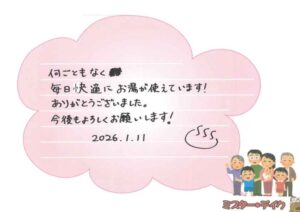 何ごともなく
毎日快適にお湯が使えています!
ありがとうございました。
今後もよろしくお願いします!
2026.1.11
ミスターデイク